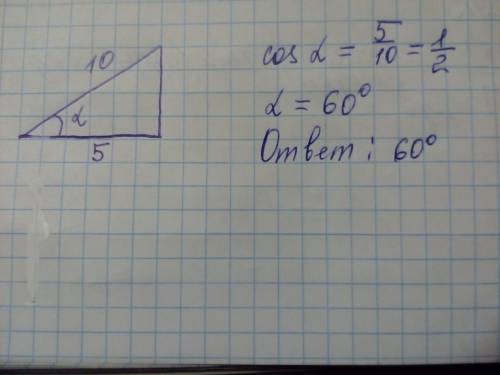 10
α
5
cos α = 5/10 = 1/2
α = 60°
Ответ: 60°